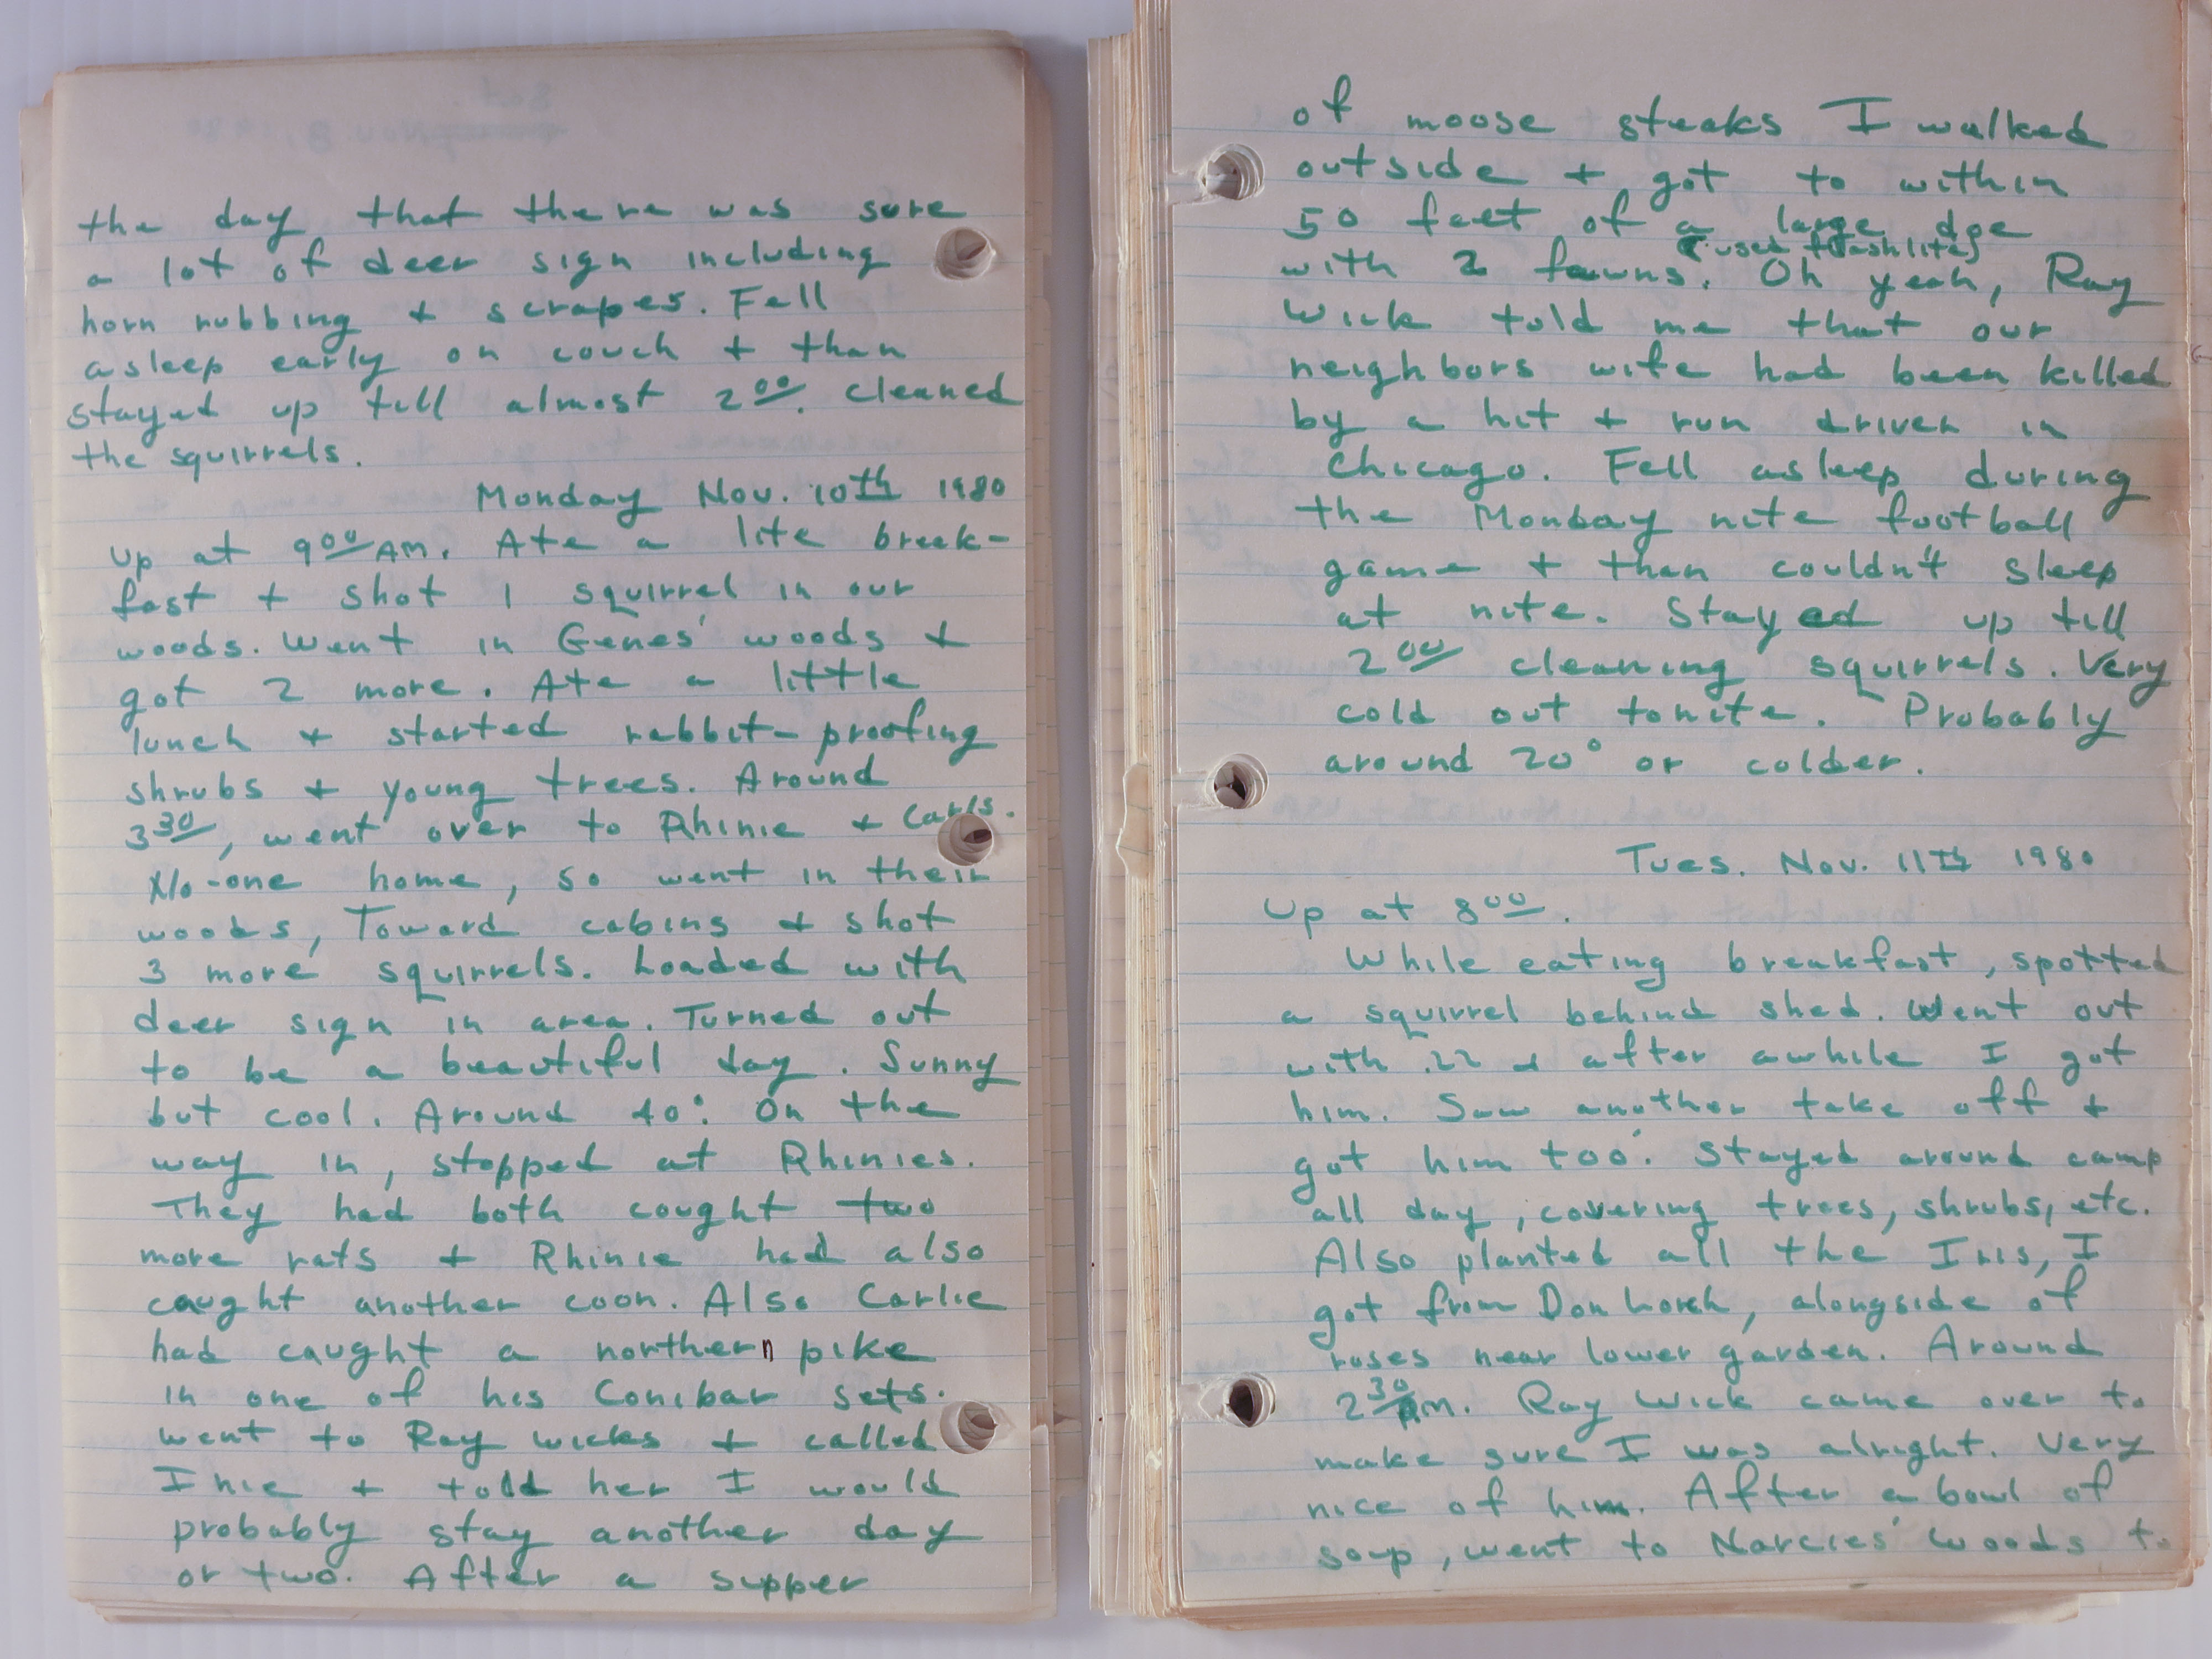 the day that there was sure
a lot of deer sign including
horn rubbing + scrapes. Fell
asleep early on couch + than
stayed up till almost 2⁰⁰. cleaned
the squirrels.
Monday Nov. 10th 1980
Up at 9⁰⁰ AM. Ate a lite break-
fast + shot 1 squirrel in our
woods. Went in Genes' woods +
got 2 more. Ate a little
lunch + started rabbit-proofing
shrubs + young trees. Around
3³⁰, went over to Rhinie + Carls.
No-one home, so went in their
woods, Toward cabins + shot
3 more squirrels. Loaded with
deer sign in area. Turned out
to be a beautiful day. Sunny
but cool. Around 40°. On the
way in, stopped at Rhinies.
They had both cought two
more rats + Rhinie had also
caught another coon. Also Carlie
had caught a northern pike
in one of his Conibar sets.
Went to Ray Wicks + called
Irie + told her I would
probably stay another day
or two. After a supper
of moose steaks I walked
outside + got to within
50 feet of a large doe
(used flashlite)
with 2 fawns. Oh yeah, Ray
Wick told me that our
neighbors wife had been killed
by a hit + run driver in
Chicago. Fell asleep during
the Monday nite football
game + than couldn't sleep
at nite. Stayed up till
2⁰⁰ cleaning squirrels. Very
cold out tonite. Probably
around 20° or colder.
Tues. Nov. 11th 1980
Up at 8⁰⁰.
While eating breakfast, spotted
a squirrel behind shed. Went out
with .22 + after awhile I got
him. Saw another take off +
got him too. Stayed around camp
all day, covering trees, shrubs, etc.
Also planted all the Iris, I
got from Don Lorch, alongside of
roses near lower garden. Around
2³⁰ PM. Ray Wick came over to
make sure I was alright. Very
nice of him. After a bowl of
soup, went to Narcies' woods to